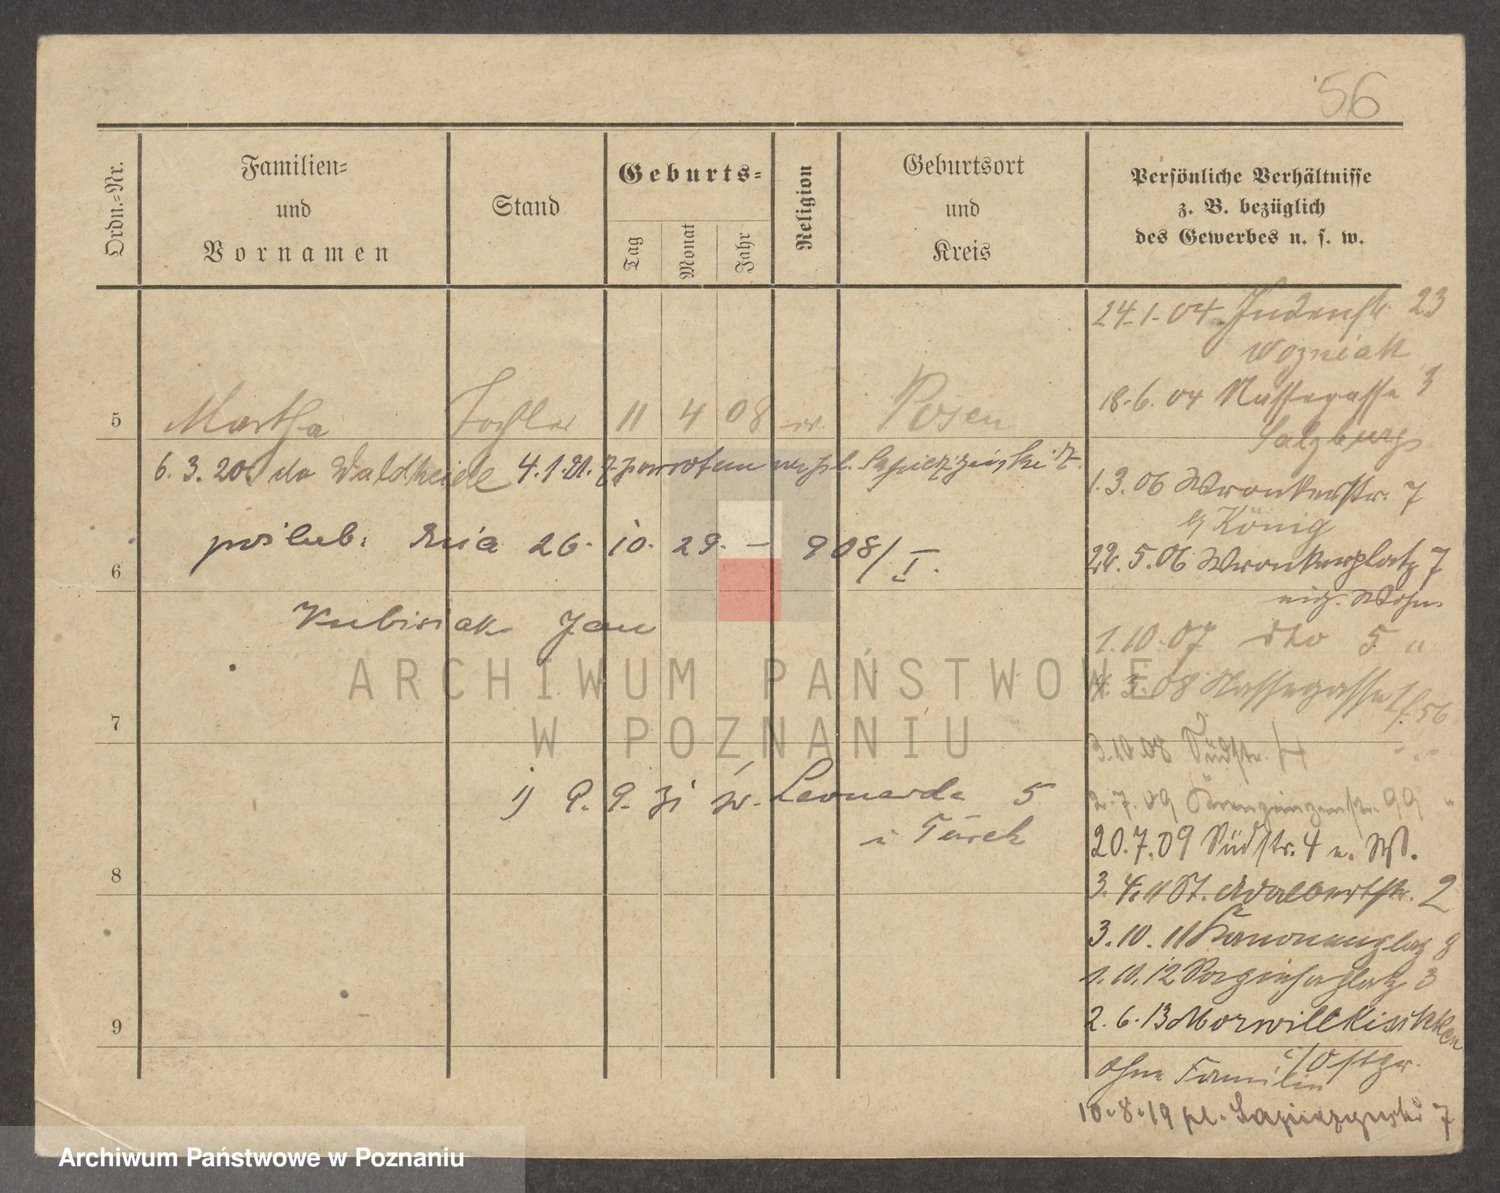 56
Ordn.-Nr.
Familien-
und
Vornamen
Stand
Geburts-
Tag
Monat
Jahr
Religion
Geburtsort
und
Kreis
Persönliche Verhältnisse
z. B. bezüglich
des Gewerbes u. s. w.
24.1.04 Judenstr 23
Wozniak
18.6.04 Nassegasse 3
Salzburg
5 Martha Tochter 11 4 08 Posen
6.3.20 do Waldheide 4.1.21. z powrotem pl. Sapieżyński 7.
1.3.06 Wronkerstr. 7
b/ König
6 poślub. dnia 26. 10. 29. – 908/I.
22.5.06 Wronkerplatz 7
eig. Wohn.
Kubisiak Jan
1.10.07 dto 5 "
4.3.08 Nassegasse 56
7
3.10.08 Südstr. 4
1) 9.9.31 św. Leonarda 5
i Turek
2.7.09 99 "
20.7.09 Südstr. 4 e. W.
8
3.4.11 St. Adalbertstr. 2
3.10.11 Kanonenplatz 8
1.10.12 Sapiehaplatz 3
9
2.6.13 Morwillkischken
i/Ostpr.
ohne Familie
10.8.19 pl. Sapieżyński 7
ARCHIWUM PAŃSTWOWE
W POZNANIU
Archiwum Państwowe w Poznaniu